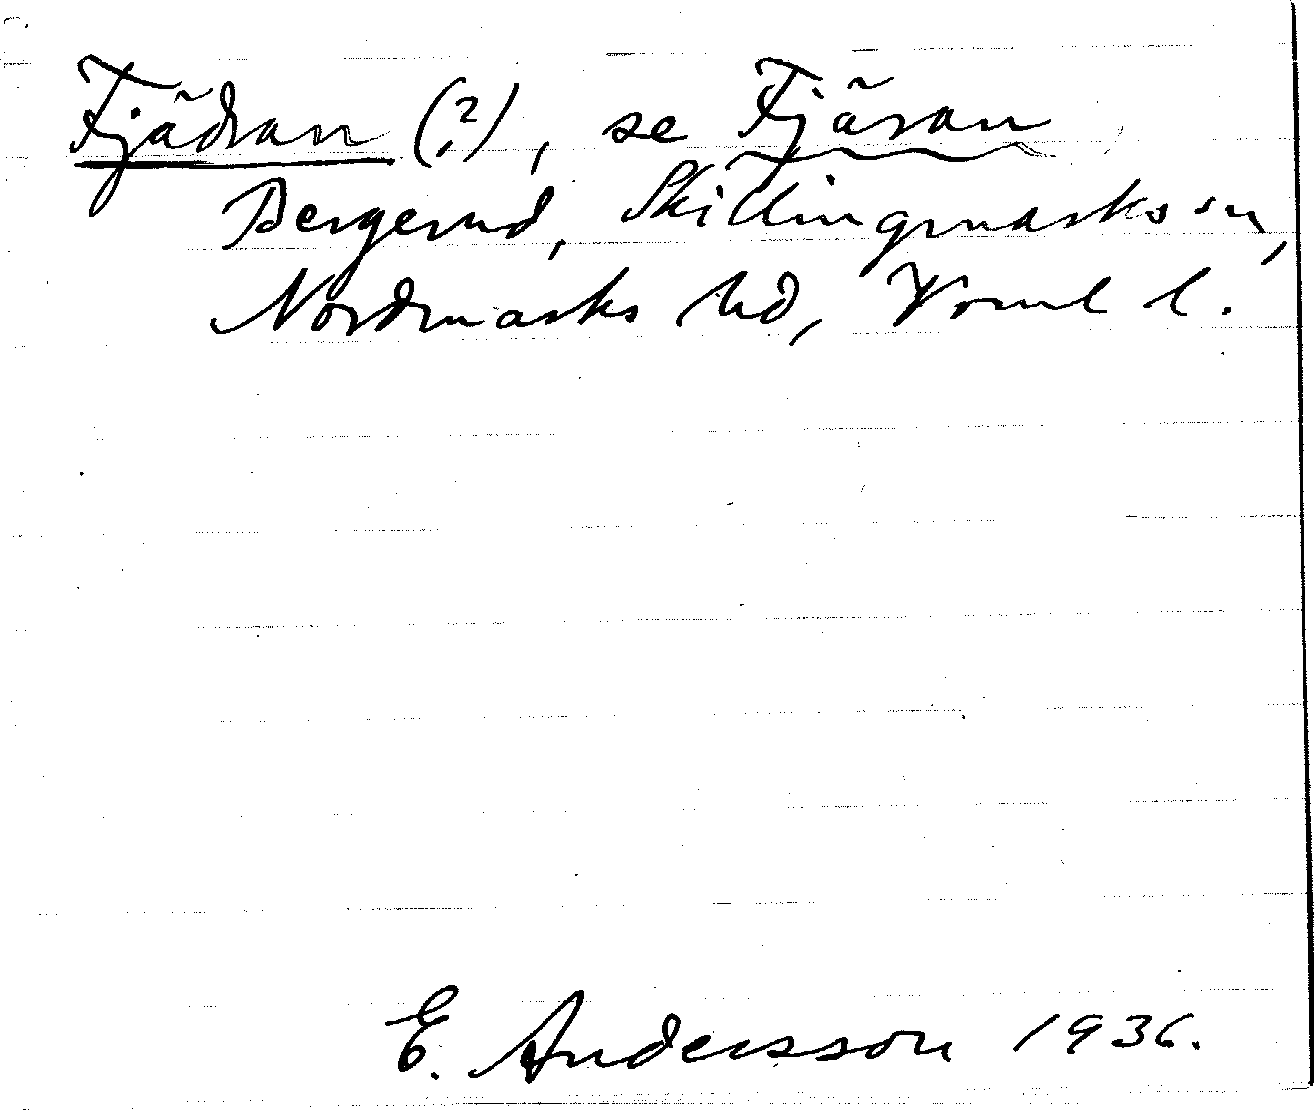 Fjädran (?), se Fjäran
Bergerud, Skillingmarks sn,
Nordmarks hd, Värml l.
E. Andersson 1936.